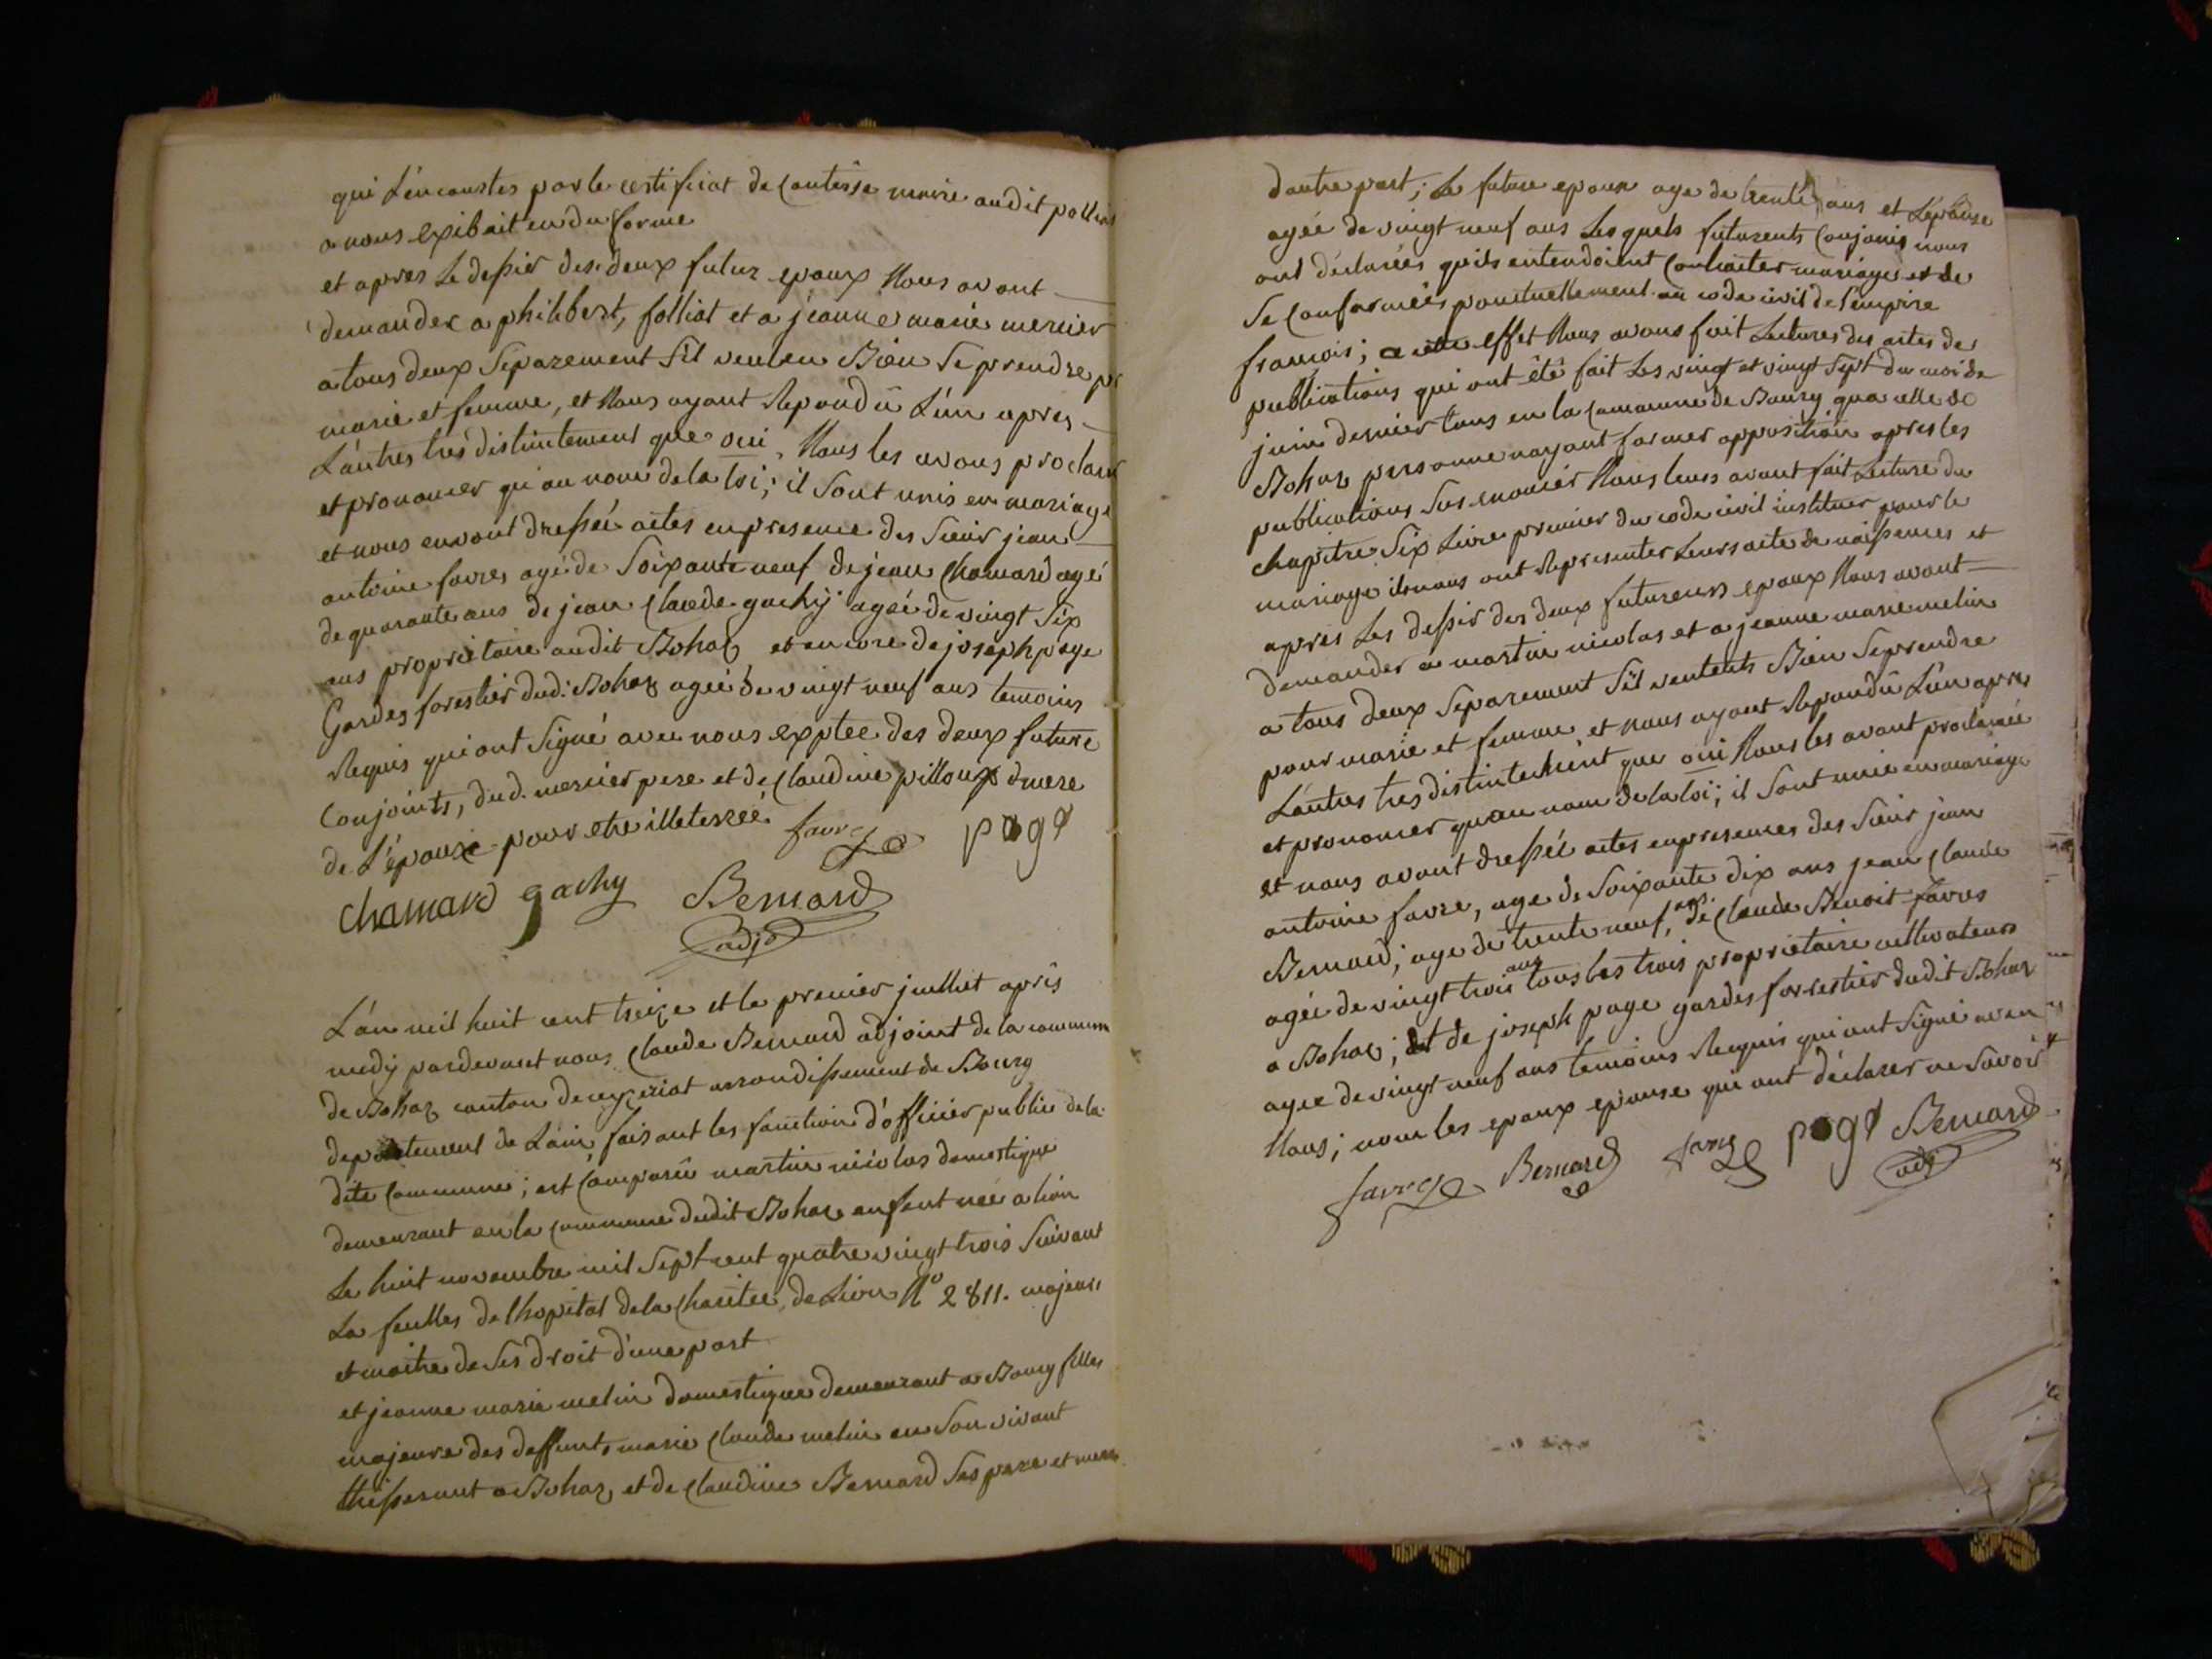 qui L'en constes par le certificat de Contesse maire audit polliat
a nous exibait en du forme
et apres Le desir des deux futur epoux Nous avont
demander a philibert, folliat et a jeanne marie mercier
a tous deux Separement s'il veulen Bien Se prendre pr
marie et femme, et Nous ayant Repondû L'un apres
L'autres tres distintement que oui, Nous les avons proclam
et prononcer qu'au nom de la loi; il Sont unis en mariage
et nous en vont dressée actes en presence des Sieur jean
antoine favres agé de Soixante neuf de jean Chamard agé
de quarante ans de jean Claude gachy agée de vingt Six
ans proprietaire audit Bohaz et encore de joseph page
Gardes forestier dud: Bohaz ageé de vingt neuf ans temoins
Requis qui ont Signé avec nous exptee des deux future
Conjoints, dud. mercier pere et de Claudine pilloux mere
de L'épouse pour etre illeterée
favre page
chamard gachy Bernard
adj.
L'an mil huit cent treize et le premier juillet après
medy pardevant nous Claude Bernard adjoint de la commune
de Bohaz canton de ceyzeriat arrondissement de Bourg
departement de L'ain, faisant les fonction d'officier public de la
dite Commune; est Comparû martin nicolas domestique
demeurant en la commune dudit Bohaz enfant née a lion
Le huit novembre mil Sept cent quatre vingt trois Suivant
La feulles de lhopital de la Charitee de Lion No 2811. majeurs
et maitre de Ses droit d'une part
et jeanne marie melin domestique demeurant a Bourg filles
majeure des deffunts marie Claude melin en Son vivant
thisserant a Bohaz et de Claudine Bernard Ses pere et mere
dautre part; Le future epoux age de trente ans et L'epouse
ageé de vingt neuf ans Les quels futurents Conjoins nous
ont déclarées quils entendoient Contracter mariage et de
Se Conformées ponctuellement au code civil de l'empire
francois; a cette effet Nous avons fait Lectures des actes de
publications qui ont êtê fait Les vingt et vingt Sept du moi de
juin dernier tans en la Commune de Bourg qua celle de
Bohaz personne nayant former opposition apres les
publications Sus enoncer Nous leurs avont fait Lecture du
chapitre Six Livre premier du code civil instituer pour le
mariage ils nous ont Representer Leurs acte de naissences et
apres Les desir des deux futureurs epoux Nous avont
demander a martin nicolas et a jeanne marie melin
a tous deux Separement s'il ventents Bien Se prendre
pour marie et femme et nous ayant Repondû L'un apres
L'autres tres distintement que oui Nous les avont proclamée
et prononcer qu'au nom de la loi; il Sont unie en mariage
et nous avont dressée actes en presences des Sieur jean
antoine favre, age de Soixante dix ans jean Claude
Bernard; age de trente neuf, ans de Claude Benoit favres
agée de vingt trois ans tous les trois proprietaire cultivateurs
a Bohaz; et de joseph page gardes forrestier dudit Bohaz
agee de vingt neuf ans temoins Requis qui ont Signé avec
Nous; non les epoux epouse qui ont déclarer ne Savoir
favre Bernard favre page Bernard
adj